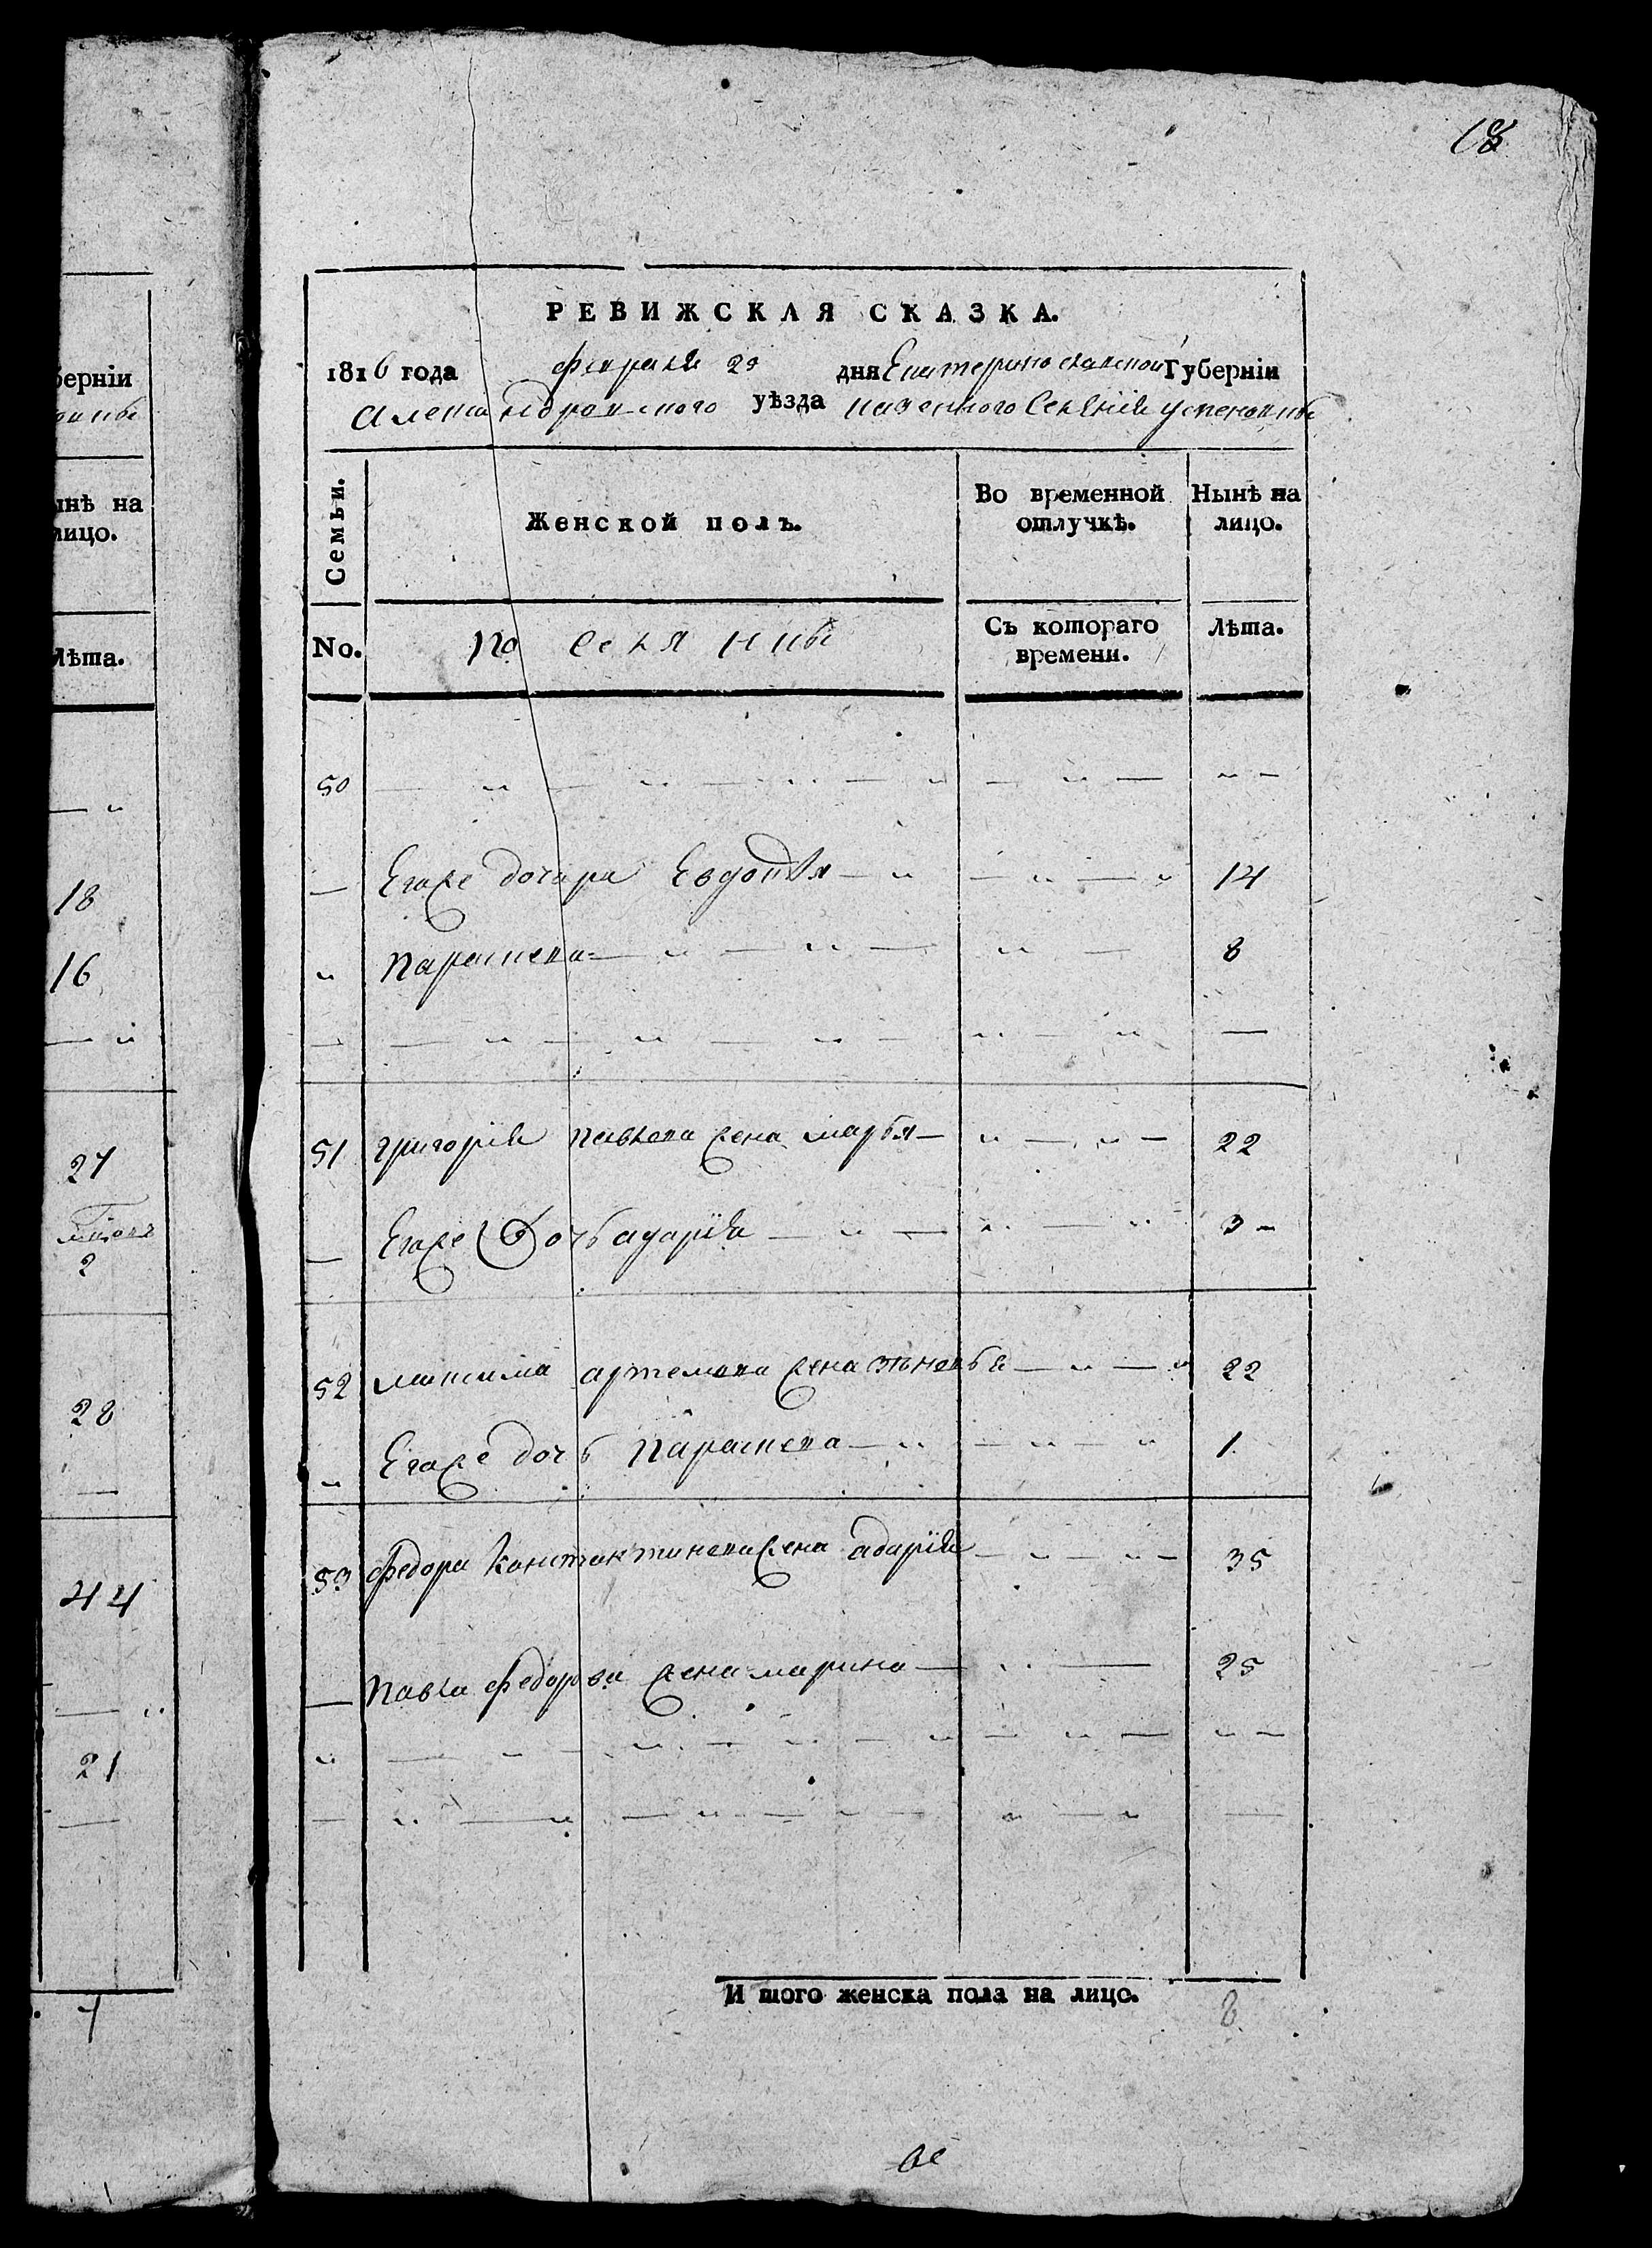 берніи
ынѣ на
лицо.
Лѣта.
18
16
27
2
28
44
21
18
РЕВИЖСКАЯ СКАЗКА.
1816 года февраля 29 дня Екатеринославской Губерніи
александровского уѣзда казенного Селенія успеновки
Семьи.
Женской полъ.
Во временной отлучкѣ.
Нынѣ на лицо.
No.
поселянки
Съ котораго времени.
Лѣта.
50
— Егоже дочери Евдокія — 14
парасковя — 8
51 григорія павлова жена марья — 22
— Егоже дочь дарія — 3 —
52 максима артемова жена зѣновья — 22
Егоже дочь парасковя — 1
53 федора константинова жена дарія — 35
— павла федорова жена марина — 25
И того женска пола на лицо. 8